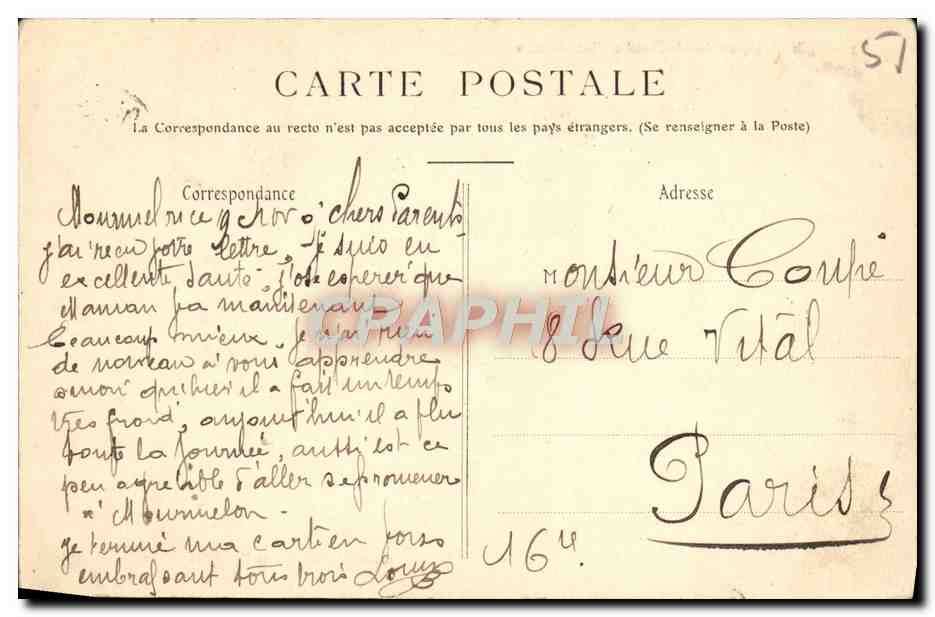 51
CARTE POSTALE
La Correspondance au recto n'est pas acceptée par tous les pays étrangers. (Se renseigner à la Poste)
Correspondance
9 Nov chers Parents
j'ai reçu votre lettre, Je suis en
excellente santé, j'ose esperer que
Maman va maintenant
beaucoup mieux, je n'ai rien
de nouveau à vous apprendre
sinon qu'hier il a fait un temps
très froid, aujourd'hui il a plu
toute la journée, aussi est ce
peu agréable d'aller se promener
à Mourmelon -
Je termine ma carte en vous
embrassant tous trois Louis
Adresse
Monsieur Coupé
8 Rue Vital
Paris
16e.
CPAPHIL